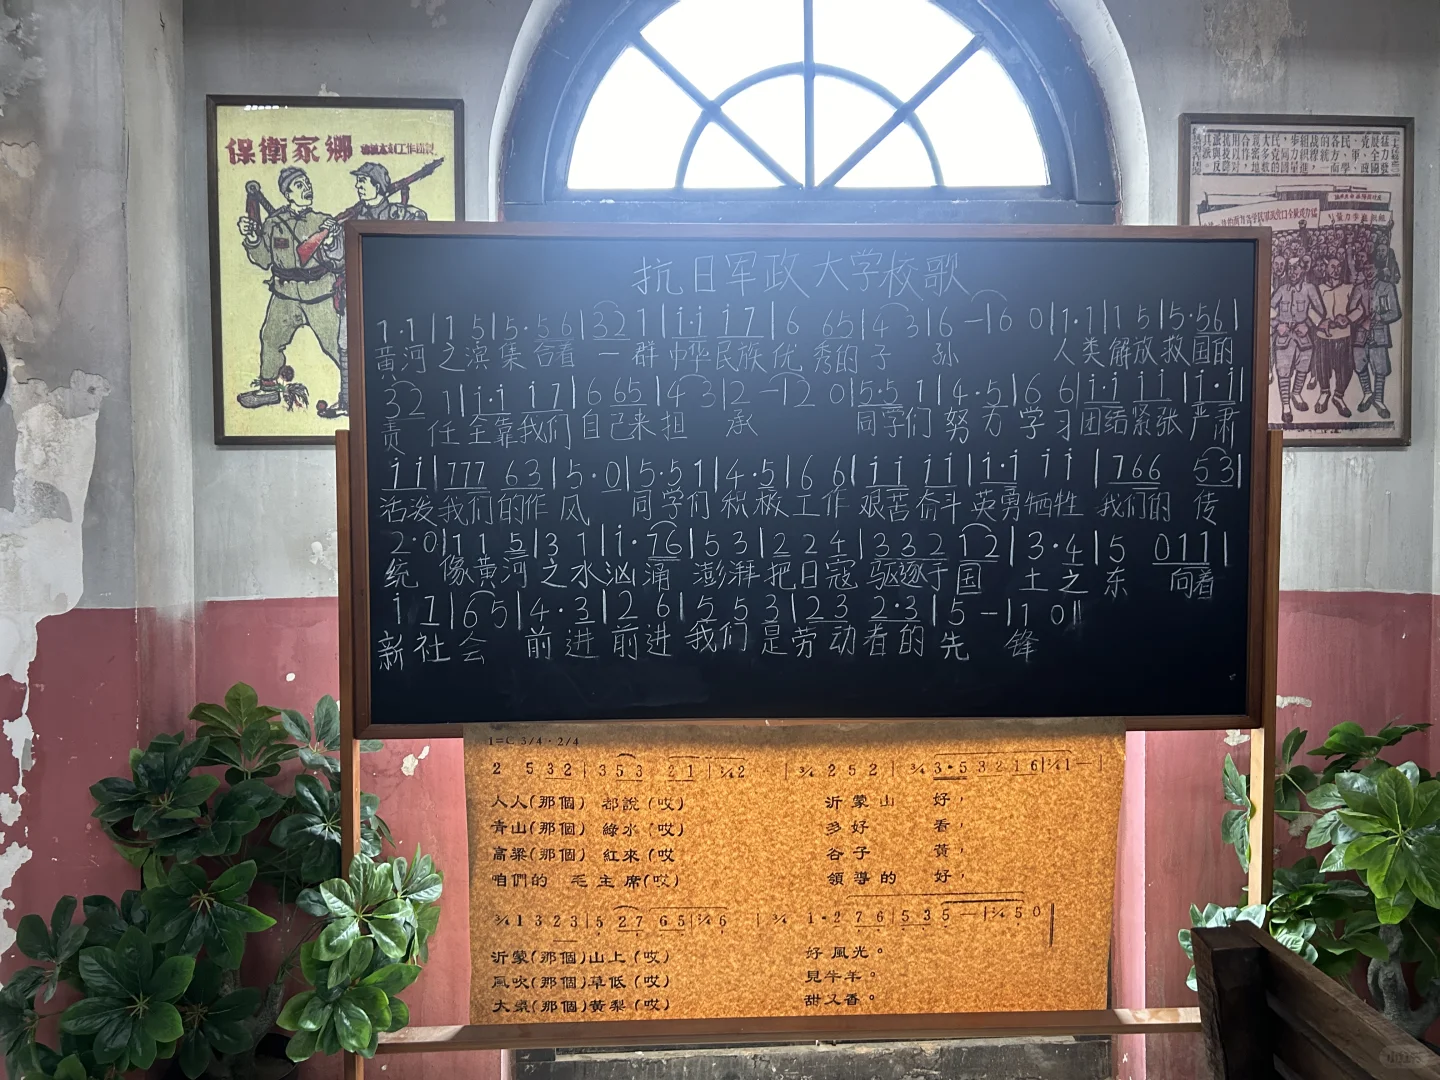 保衛家鄉
抗日军政大学校歌
1·1|1 5|5·56|32 1|i·i i7|6 65|4 3|6 -|6 0|1·1|1 5|5·56|
黄河之滨集合着一群中华民族优秀的子孙 人类解放救国的
32 1|i·i i7|6 65|4 3|2 -|2 0|5·5 1|4·5|6 6|i·i i i|i·i|
责任全靠我们自己来担承 同学们努力学习团结紧张严肃
i i|777 63|5·0|5·5 1|4·5|6 6|i i i i|i·i i i|766 53|
活泼我们的作风 同学们积极工作艰苦奋斗英勇牺牲我们的传
2·0|1 1 5|3 1|i·76|5 3|2 2 4|332 12|3·4|5 011|
统 像黄河之水汹涌澎湃把日寇驱逐于国土之东 向着
i 1|65|4·3|2 6|5 5 3|23 2·3|5 -|1 0‖
新社会前进前进我们是劳动者的先锋
1=C 3/4·2/4
2 532|353 21|3/4 2 |3/4 252|3/4 3·53216|3/4 1—|
人人(那個) 都說(哎) 沂蒙山 好，
青山(那個) 綠水(哎) 多好 看，
高粱(那個) 紅來(哎 谷子 黃，
咱們的 毛主席(哎) 領導的 好，
3/4 1323|5 27 65|3/4 6 | 3/4 1·276|535 5—|3/4 50|
沂蒙(那個)山上(哎) 好風光。
風吹(那個)草低(哎) 見牛羊。
大棗(那個)黃梨(哎) 甜又香。